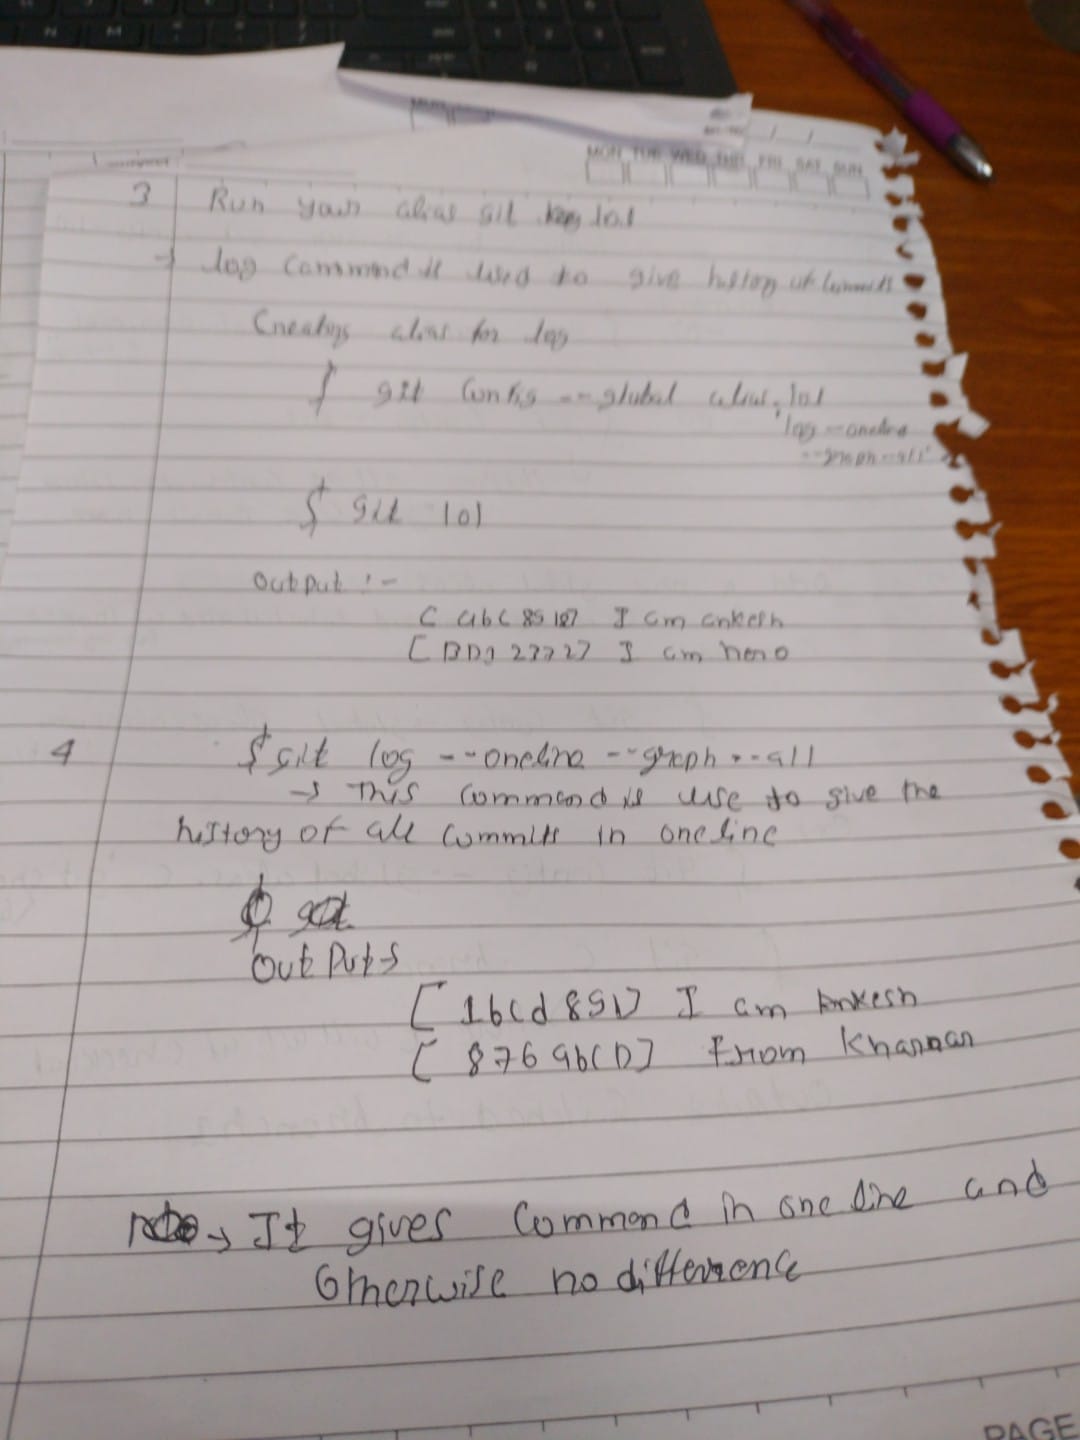 MON TUE WED THU FRI SAT SUN
3 Run your alias git lol
→ log command is used to give history of commits
Creating alias for log
$ git config --global alias.lol
'log --oneline
--graph --all'
$ git lol
Output :-
I am ankesh
I am hero
4 $ git log --oneline --graph --all
→ This command is use to give the
history of all commits in oneline
Output →
[ 1bcd851] I am Ankesh
[ 8769bCD] From Khannan
→ It gives command in one line and
Otherwise no difference
PAGE